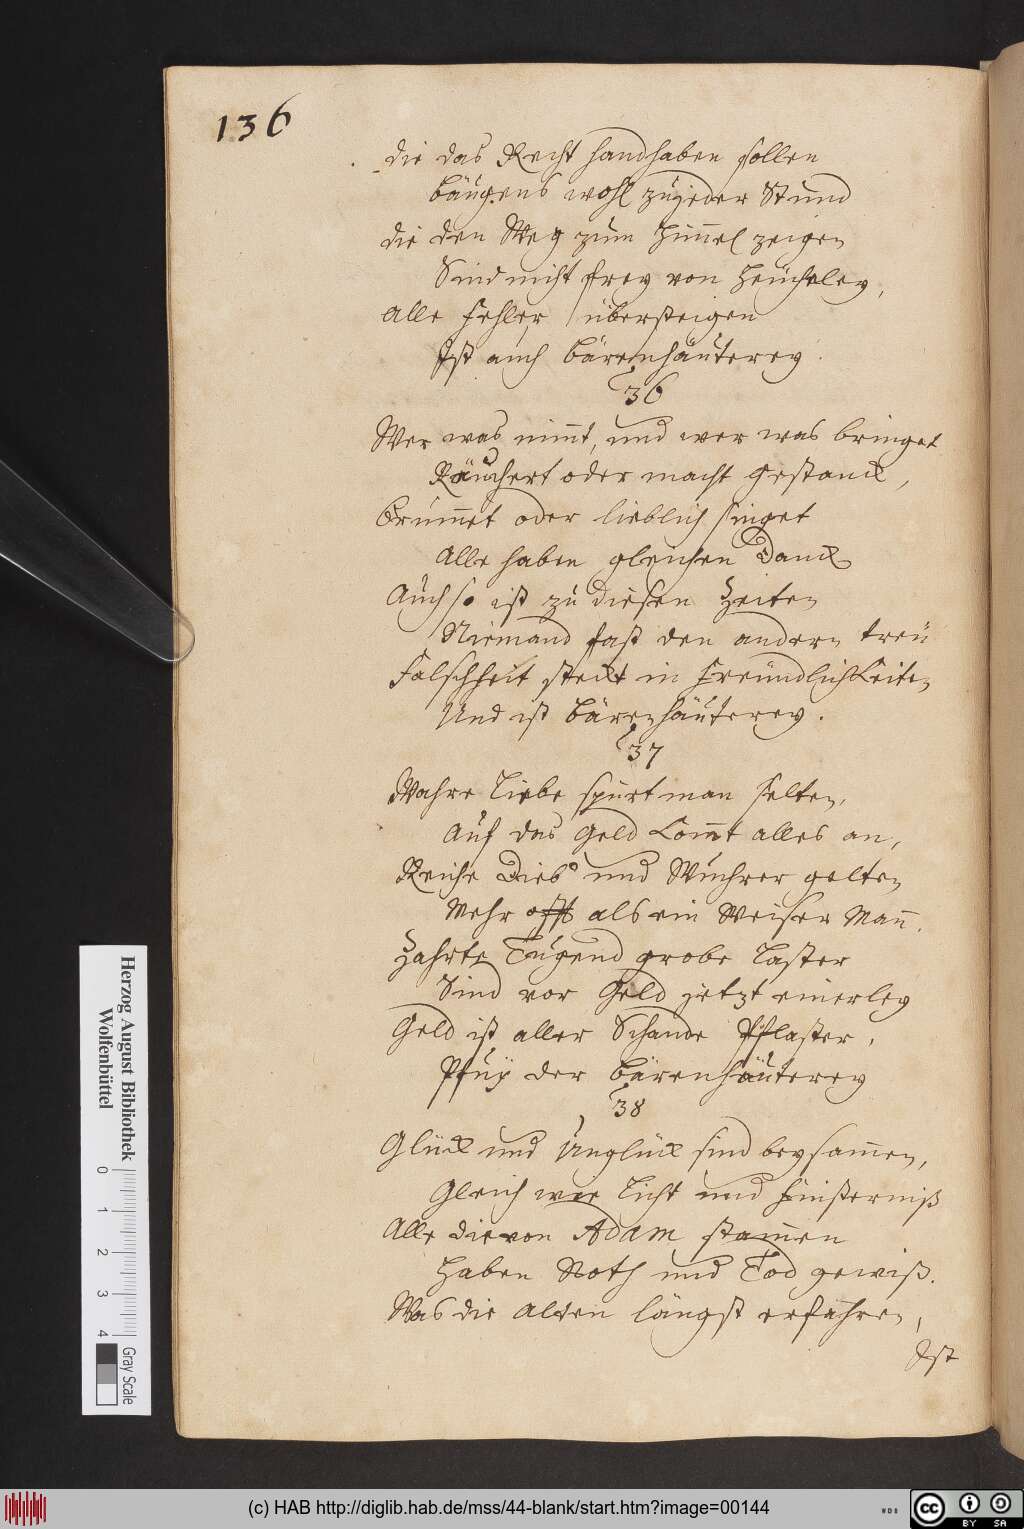 136
die das Recht handhaben sollen
bäugens wohl zu jeder Stund
die den Weg zum Him̄el zeigen
Sind nicht frey von Heücheley,
Alle Fehler übersteigen
Ist auch Bärenhäuterey.
36
Wer was nim̄t, und wer was bringet
Räuchert oder macht Gestanck,
Brum̄et oder lieblich singet
Alle haben gleichen Danck
Auch so ist zu diesen Zeiten
Niemand fast den andern treü
Falschheit steckt in Freündlichkeiten
Und ist Bärenhäuterey.
37
Wahre Liebe spürt man selten,
Auf das Geld kom̄t alles an,
Reiche Dieb und Wuchrer gelten
Mehr offt als ein Weiser Man̄.
Zahrte Tugend grobe Laster
Sind vor Geld jetzt einerley
Geld ist aller Schande Pflaster,
Pfuÿ der Bärenhäuterey
38
Glück und Unglück sind beysam̄en,
Gleich wie Licht und Finsterniß
Alle die von Adam stam̄en
Haben Noth und Tod gewiß.
Was die Alten längst erfahren,
Ist
Herzog August Bibliothek
Wolfenbüttel
0 1 2 3 4
Gray Scale
(c) HAB http://diglib.hab.de/mss/44-blank/start.htm?image=00144
WDB
cc
BY SA